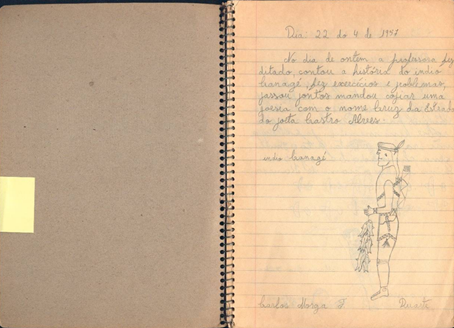 Dia: 22 do 4 de 1947
No dia de ontem a professora fez
ditado, contou a história do indio
fez exercicios e problemas,
passou pontos mandou copiar uma
poesia com o nome Cruz da Estrada
do poeta Castro Alves.
indio
Carlos